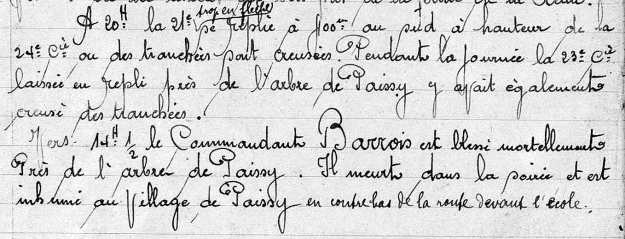 trop en flèche
A 20H la 21e se replie à 800m au sud à hauteur de la
24e Cie ou des tranchées sont creusées. Pendant la journée la 23e Cie
laissée en repli près de l'arbre de Paissy y avait également
creusé des tranchées.
Vers 14H 1/2 le Commandant Barrois est blessé mortellement
Près de l'arbre de Paissy. Il meurt dans la soirée et est
inhumé au village de Paissy en contre-bas de la route devant l'école.